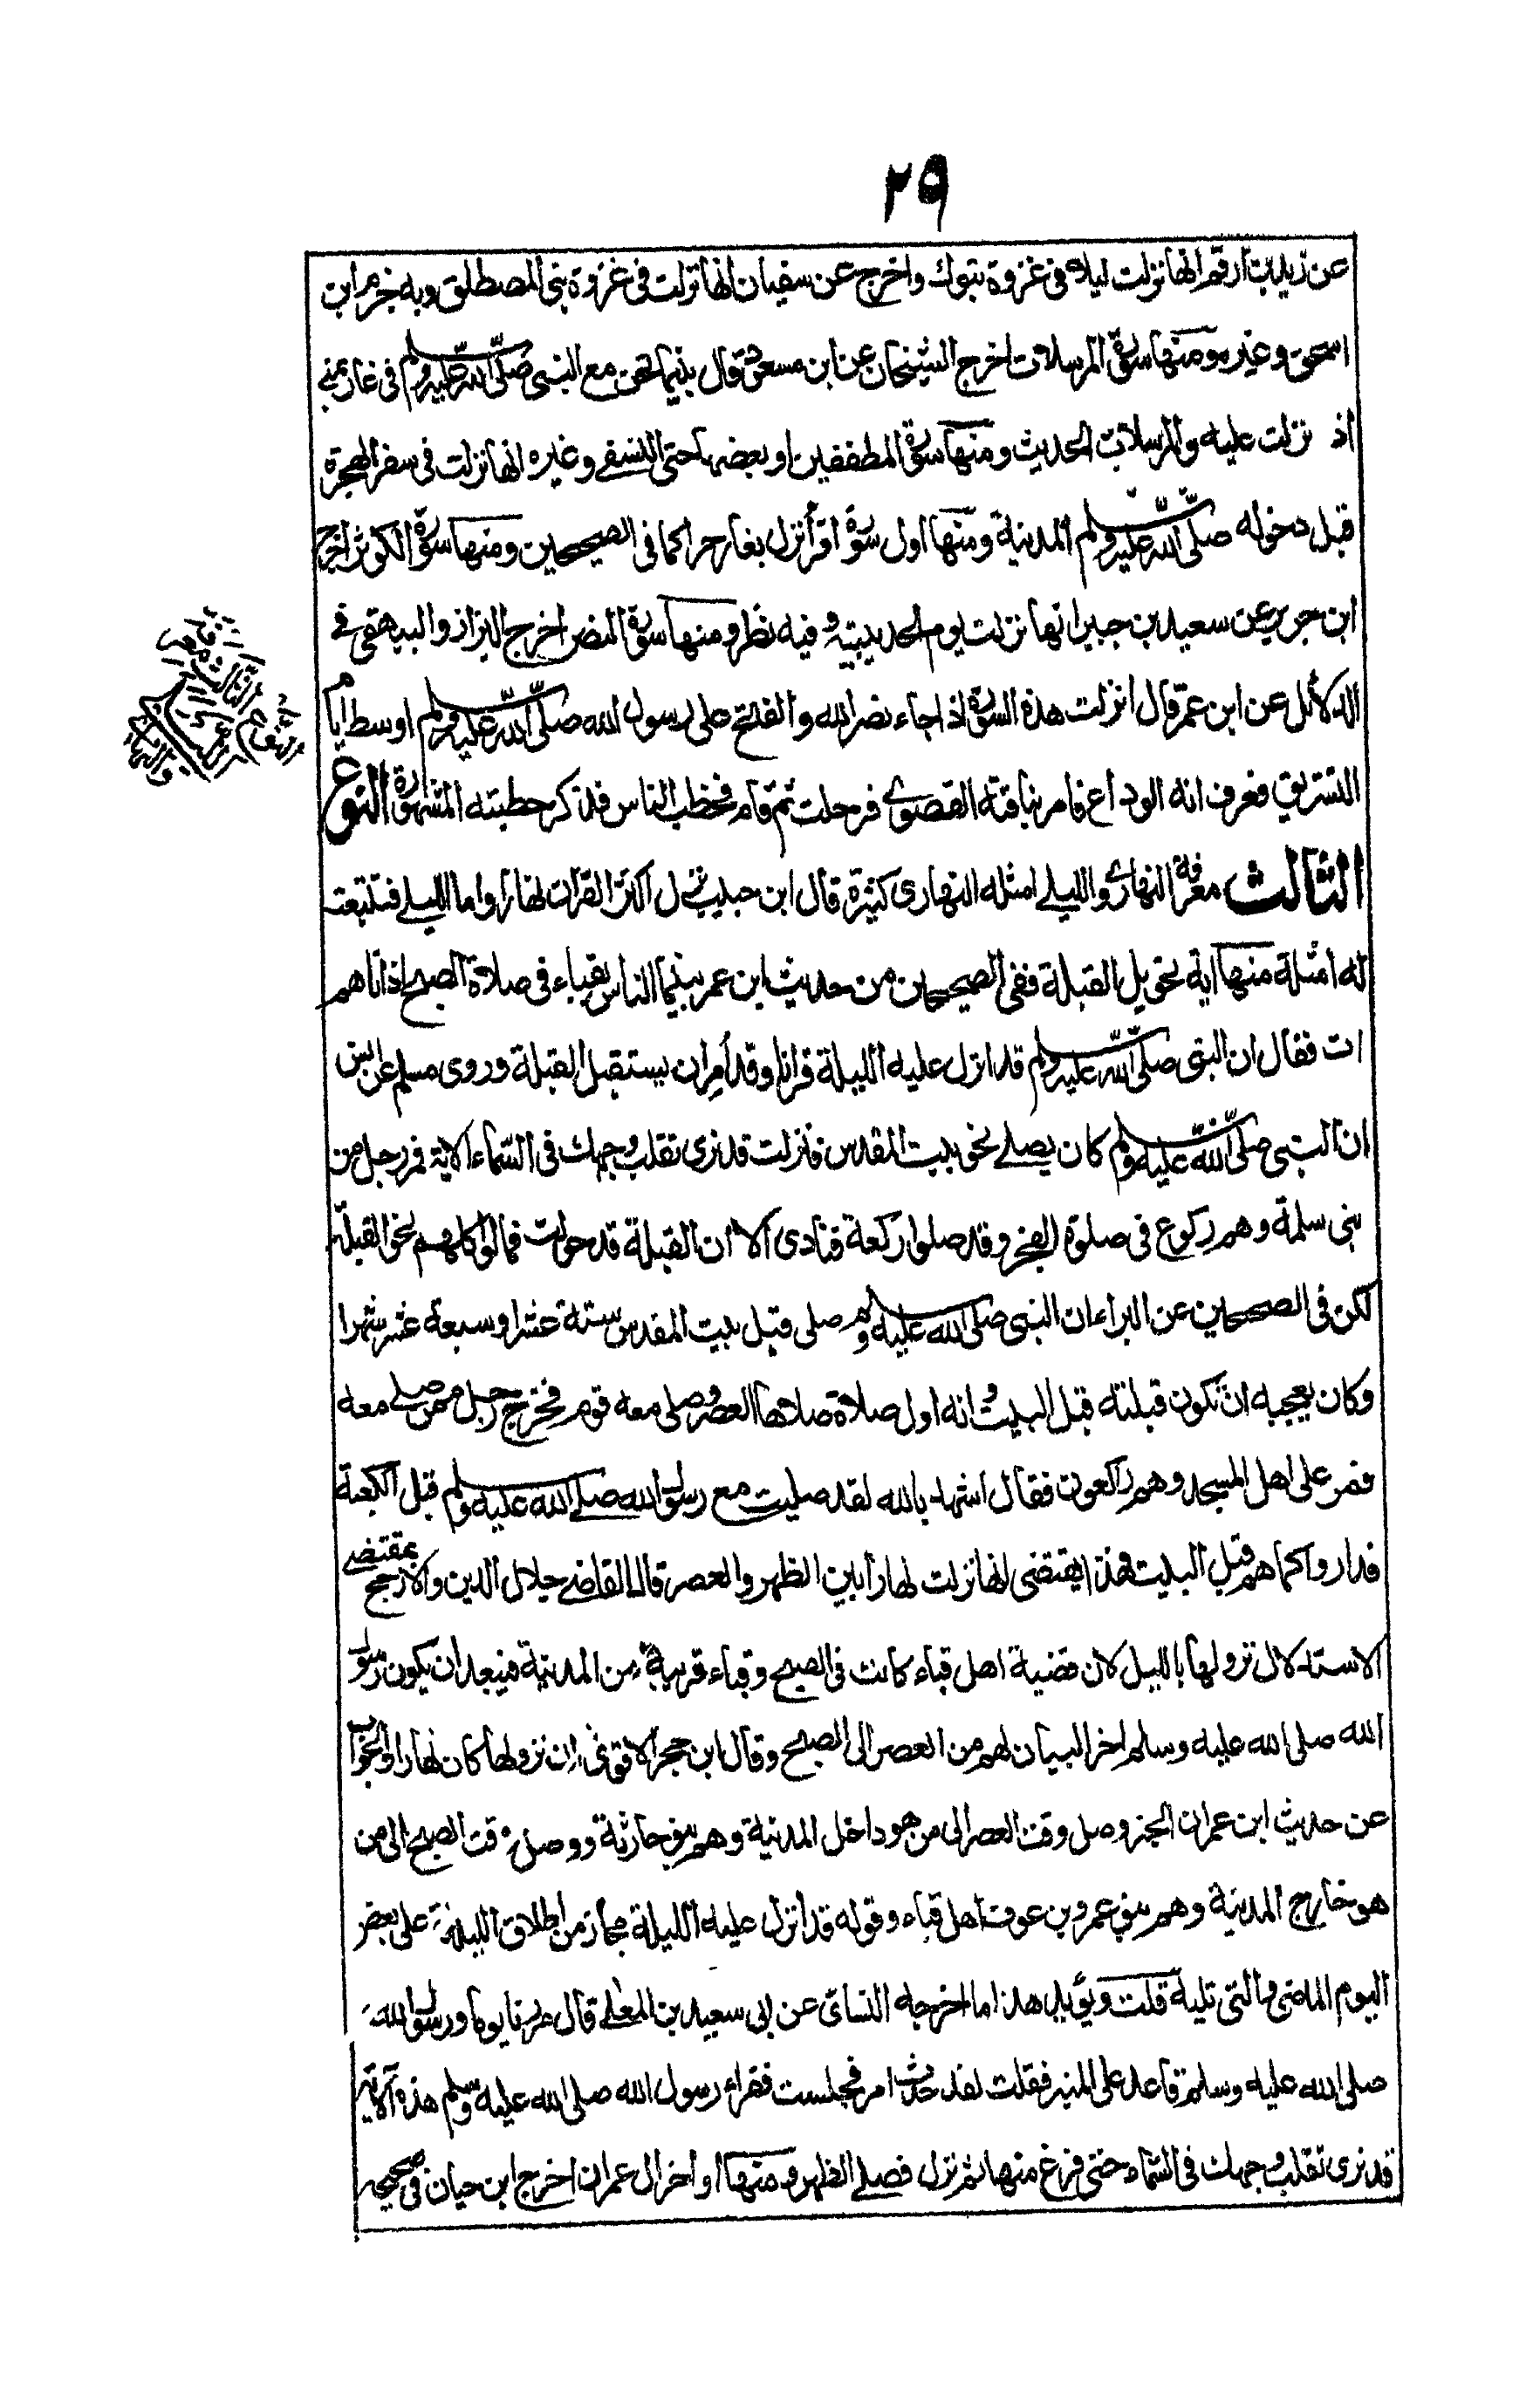 ٢٩
عن زيد بن ارقم انها نزلت ليلا فى غزوة تبوك واخرج عن سفيان انها نزلت فى غزوة بنى المصطلق وبه جزم ابن
اسحق وغيره ومنها سورة المرسلات اخرج الشيخان عن ابن مسعود قال بينما نحن مع النبى صلى الله عليه وسلم فى غار بمنى
اذ نزلت عليه والمرسلات الحديث ومنها سورة المطففين او بعضها حتى النسفے وغيره انها نزلت فى سفر الهجرة
قبل دخوله صلى الله عليه وسلم المدينة ومنها اول سورة اقرأ نزل بغار حرا كما فى الصحيحين ومنها سورة الكوثر اخرج
ابن جرير عن سعيد بن جبير انها نزلت يوم الحديبية وفيه نظر ومنها سورة النصر اخرج البزاز والبيهقى فے
الدلائل عن ابن عمر قال انزلت هذه السورة اذا جاء نصر الله والفتح على رسول الله صلى الله عليه وسلم اوسط ايام
التشريق فعرف انه الوداع فامر بناقته القصوے فرحلت ثم قام فخطب الناس فذكر خطبته المشهورة النوع
الثالث معرفة النهارے والليلے امثله النهارى كثيرة قال ابن حبيب نزل اكثر القران نهارا واما الليلے فتتبعت
له امثلة منها اية تحويل القبلة ففى الصحيحين من حديث ابن عمر بينما الناس بقباء فى صلاة الصبح اذ اتاهم
ات فقال ان النبى صلى الله عليه وسلم قد انزل عليه الليلة قرانا وقد أمر ان يستقبل القبلة وروى مسلم عن انس
ان النبى صلى الله عليه وسلم كان يصلے نحو بيت المقدس فنزلت قد نرى تقلب وجهك فى السماء الاية فمر رجل من
بنى سلمة وهم ركوع فى صلوة الفجر وقد صلوا ركعة فنادى الا ان القبلة قد حولت فمالوا كلهم نحو القبلة
لكن فى الصحيحين عن البراء ان النبى صلى الله عليه وسلم صلى قبل بيت المقدس ستة عشرا وسبعة عشر شهرا
وكان يعجبه ان تكون قبلته قبل البيت وانه اول صلاة صلاها العصر وصلى معه قوم فخرج رجل ممن صلے معه
فمر على اهل المسجد وهم راكعون فقال اشهد بالله لقد صليت مع رسول الله صلے الله عليه وسلم قبل الكعبة
فداروا كما هم قبل البيت فهذا يقتضى انها نزلت نهارا بين الظهر والعصر قال القاضے جلال الدين والارجح بمقتضے
الاستدلال نزولها بالليل لان قضية اهل قباء كانت فى الصبح وقباء قريبة من المدينة فيبعد ان يكون رسول
الله صلى الله عليه وسلم اخر البيان لهم من العصر الى الصبح وقال ابن حجر الاقوى ان نزولها كان نهارا والجواب
عن حديث ابن عمر ان الخبر وصل وقت العصر الى من هو داخل المدنية وهم بنو حارثة ووصل وقت الصبح الى من
هو خارج المدنية وهم بنو عمرو بن عوف اهل قباء وقوله قد انزل عليه الليلة مجاز من اطلاق الليلة على بعض
اليوم الماضى والتى تليه قلت ويؤيد هذا ما اخرجه النسائ عن ابى سعيد بن المعلے قال مررنا يوما ورسول الله
صلى الله عليه وسلم قاعد على المنبر فقلت لقد حدث امر فجلست فقراء رسول الله صلى الله عليه وسلم هذه الاية
قد نرى تقلب وجهك فى السماء حتى فرغ منها ثم نزل فصلے الظهر ومنها اواخر ال عمران اخرج ابن حبان فى صحيحه